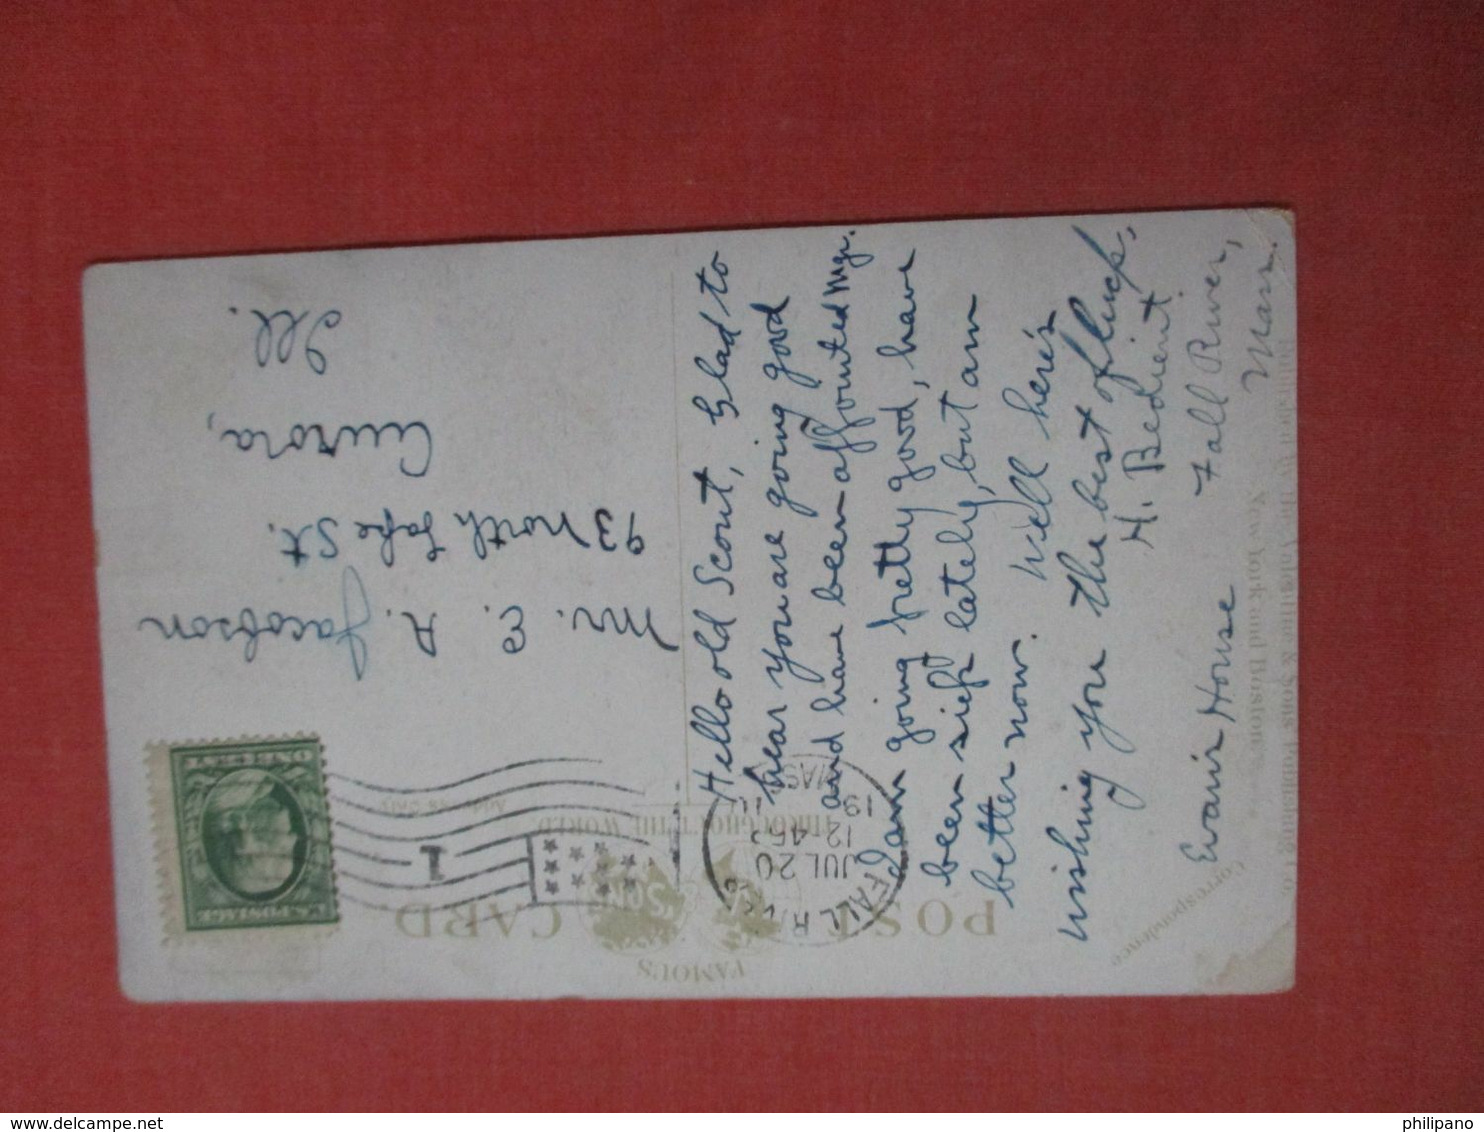 Hello old Scout, Glad to
hear you are going good
and have been appointed Mgr.
I am going pretty good, have
been sick lately, but am
better now. Well here's
wishing you the best of luck,
H. Bedient
Evans House
Fall River,
Mass.
Mr. E. A.
Jacobson
93 North Lake St.
Aurora,
Ill.
POST CARD
FAMOUS
THROUGHOUT THE WORLD
Correspondence
FALL RIVER
JUL 20
12 45 P
19
MASS
1
U.S. POSTAGE
ONE CENT
New York and Boston
philipano